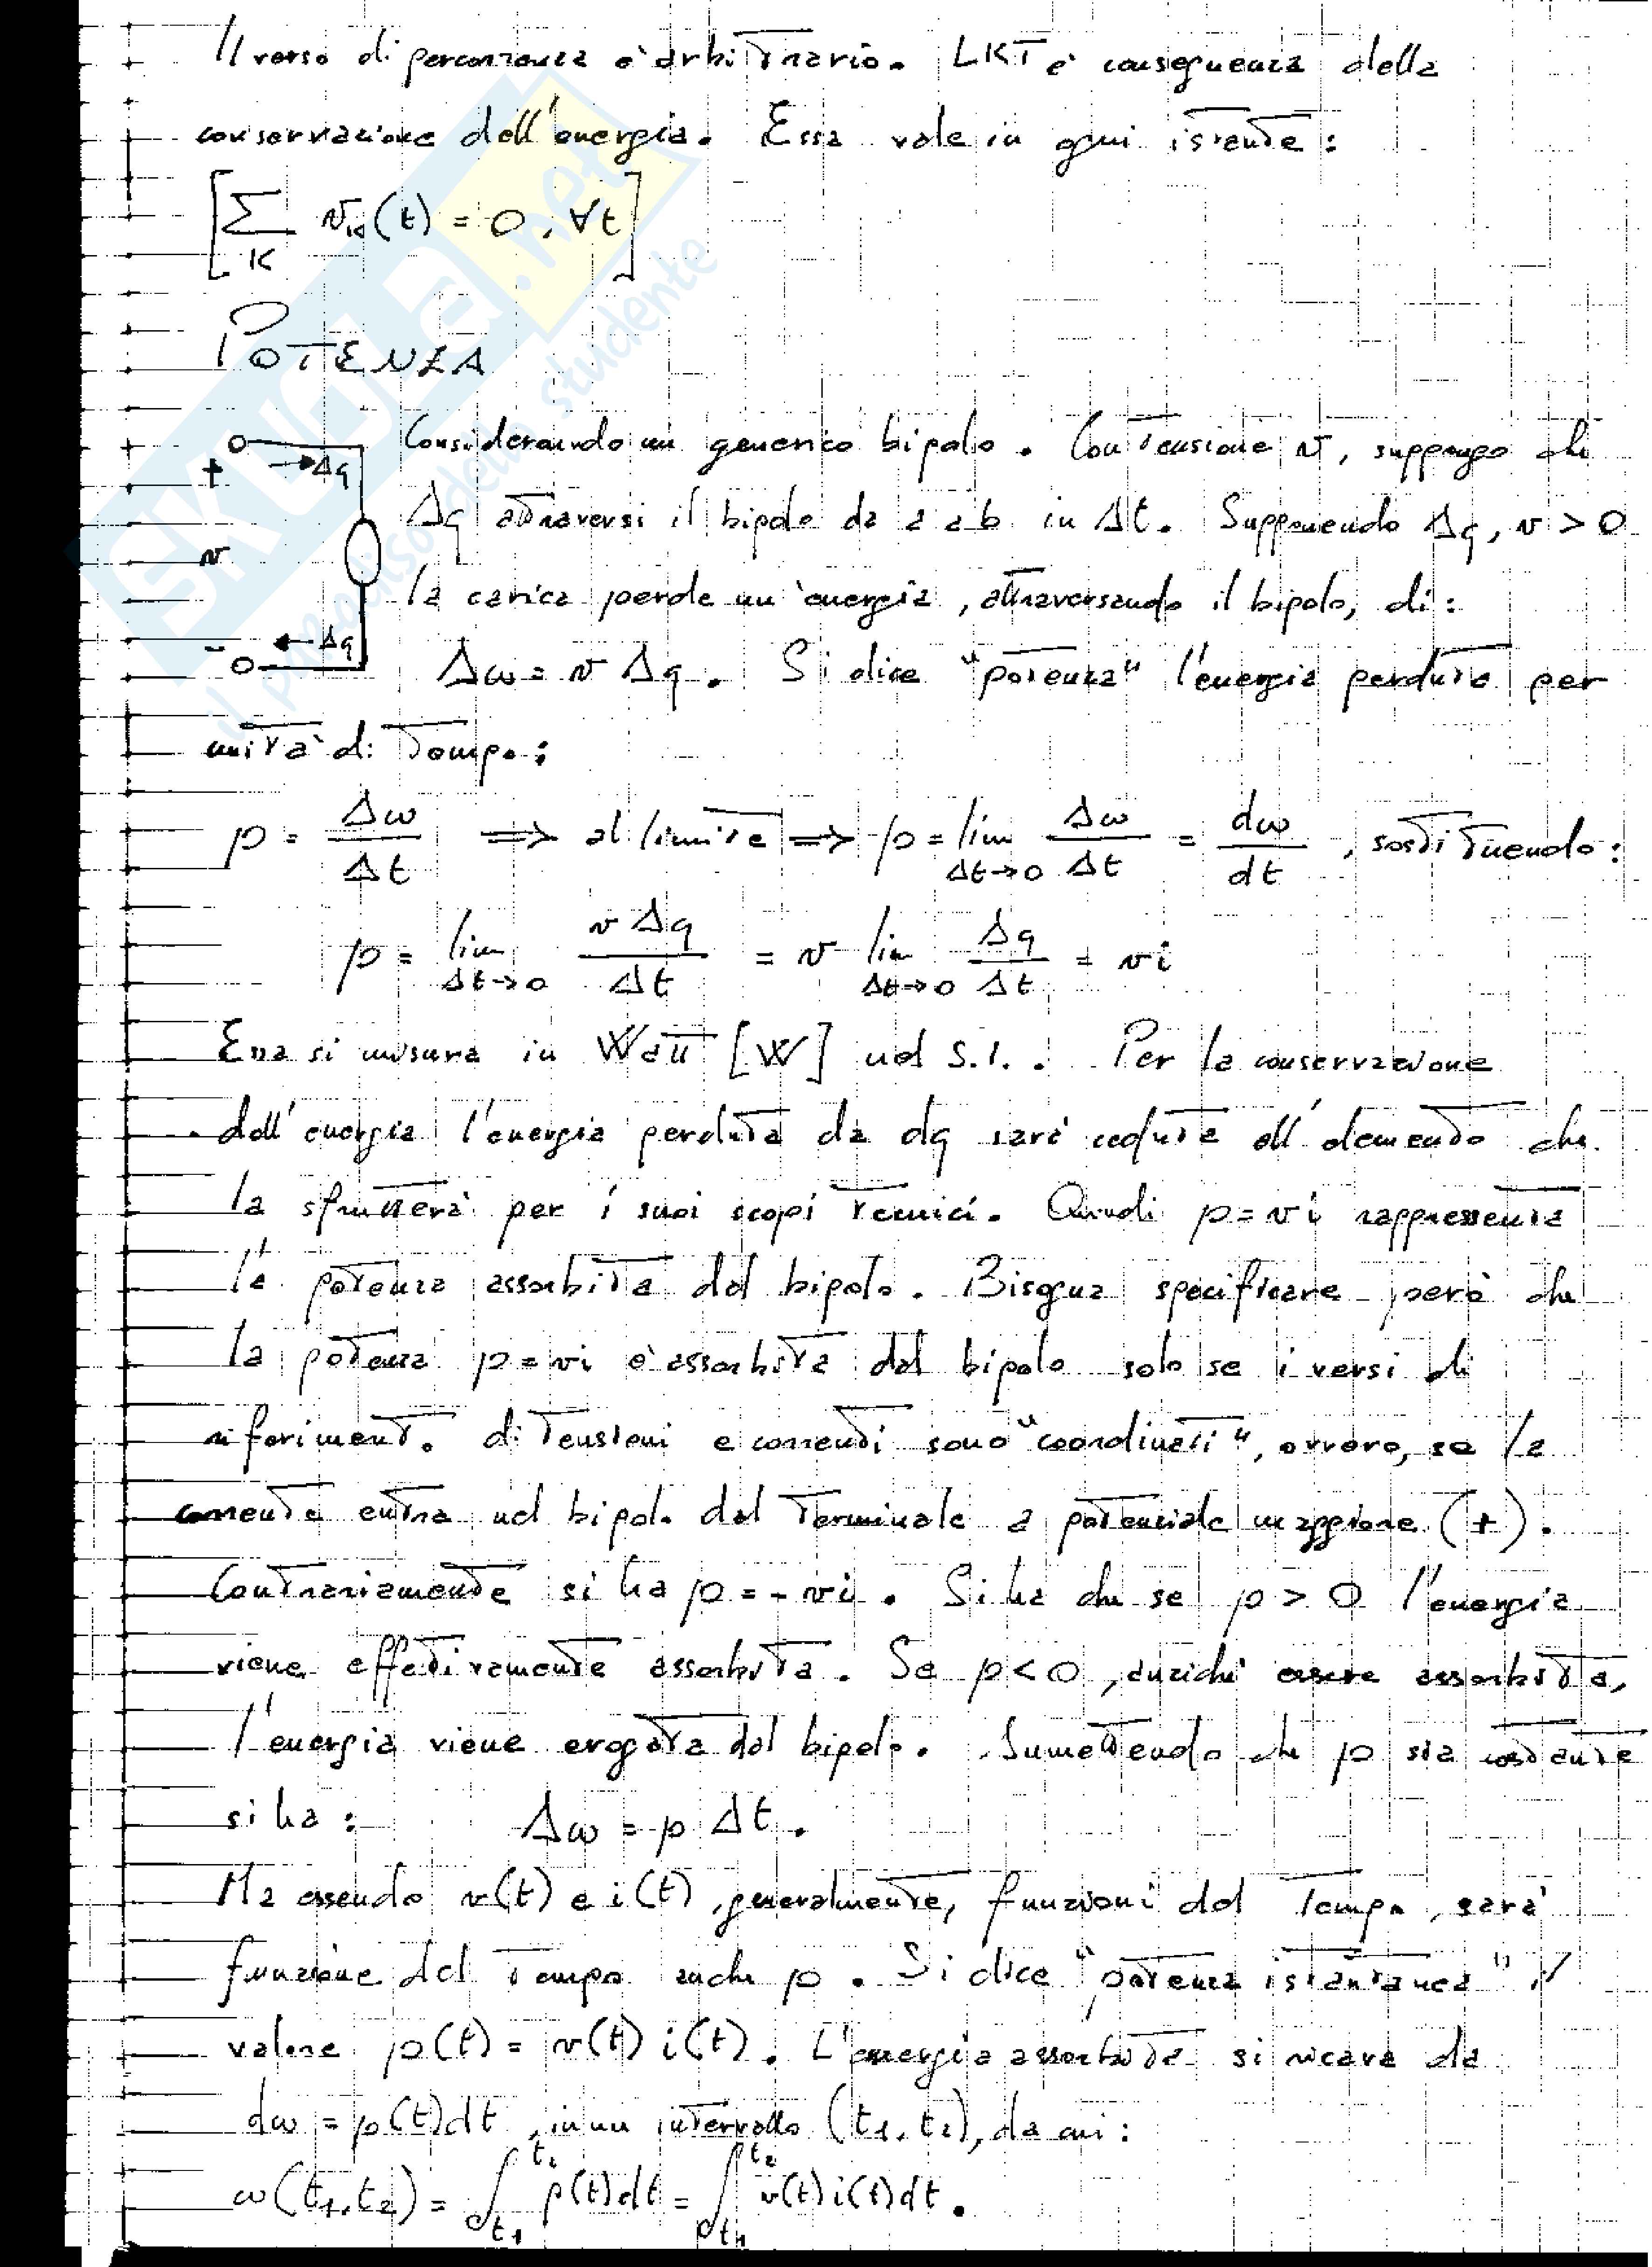 Il verso di percorrenza è arbitrario. LKT è conseguenza della
conservazione dell'energia. Essa vale in ogni istante:
[∑_K v_K(t) = 0, ∀t]
POTENZA
Considerando un generico bipolo. Con tensione v, suppongo che
Δq attraversi il bipolo da a a b in Δt. Supponendo Δq, v > 0
la carica perde un'energia, attraversando il bipolo, di:
Δω = v Δq. Si dice "potenza" l'energia perduta per
unità di tempo:
+ →Δq
v
- ←Δq
p = Δω/Δt ⇒ al limite ⇒ p = lim_{Δt→0} Δω/Δt = dω/dt, sostituendo:
p = lim_{Δt→0} vΔq/Δt = v lim_{Δt→0} Δq/Δt = vi
Essa si misura in Watt [W] nel S.I.. Per la conservazione
dell'energia l'energia perduta da dq sarà ceduta all'elemento che
la sfrutterà per i suoi scopi tecnici. Quindi p = vi rappresenta
la potenza assorbita dal bipolo. Bisogna specificare però che
la potenza p = vi è assorbita dal bipolo solo se i versi di
riferimento di tensioni e correnti sono "coordinati", ovvero, se la
corrente entra nel bipolo dal terminale a potenziale maggiore (+).
Contrariamente si ha p = -vi. Si ha che se p > 0 l'energia
viene effettivamente assorbita. Se p < 0, anziché essere assorbita,
l'energia viene erogata dal bipolo. Ammettendo che p sia costante
si ha: Δω = p Δt.
Ma essendo v(t) e i(t), generalmente, funzioni del tempo, sarà
funzione del tempo anche p. Si dice "potenza istantanea" il
valore p(t) = v(t) i(t). L'energia assorbita si ricava da
dω = p(t)dt, in un intervallo (t1, t2), da cui:
ω(t1,t2) = ∫_{t1}^{t2} p(t)dt = ∫_{t1}^{t2} v(t)i(t)dt.
SKUOLA.net
il paradiso dello studente